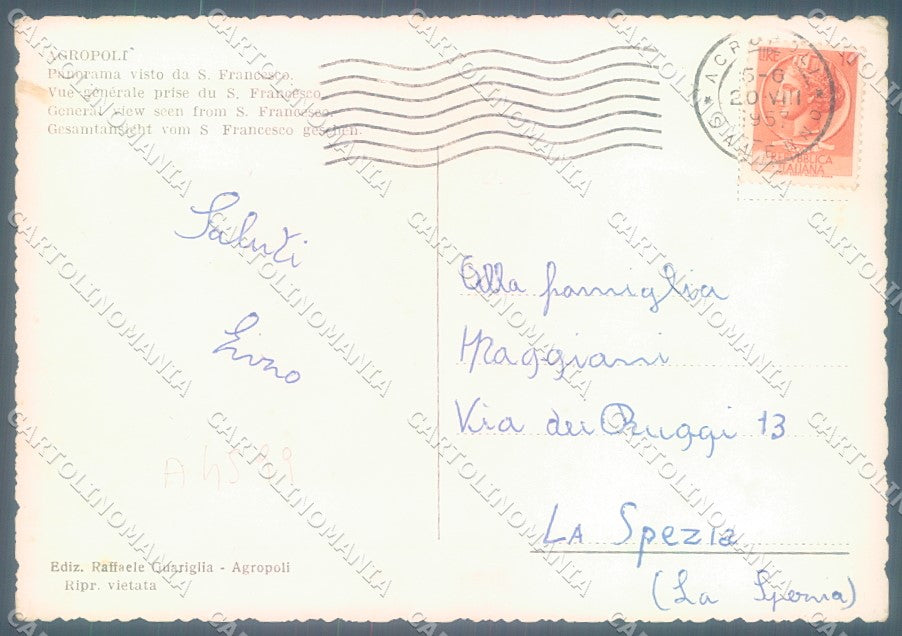 AGROPOLI
Panorama visto da S. Francesco.
Vue générale prise du S. Francesco
General view seen from S. Francesco
Gesamtansight vom S Francesco geschen.
LIRE 10
REPUBBLICA
ITALIANA
5-6
20 VIII
Saluti
Alla famiglia
Maggiani
Via dei Ruggi 13
LA Spezia
(La Spezia)
A 4599
Ediz. Raffaele Guariglia - Agropoli
Ripr. vietata
CARTOLINOMANIA